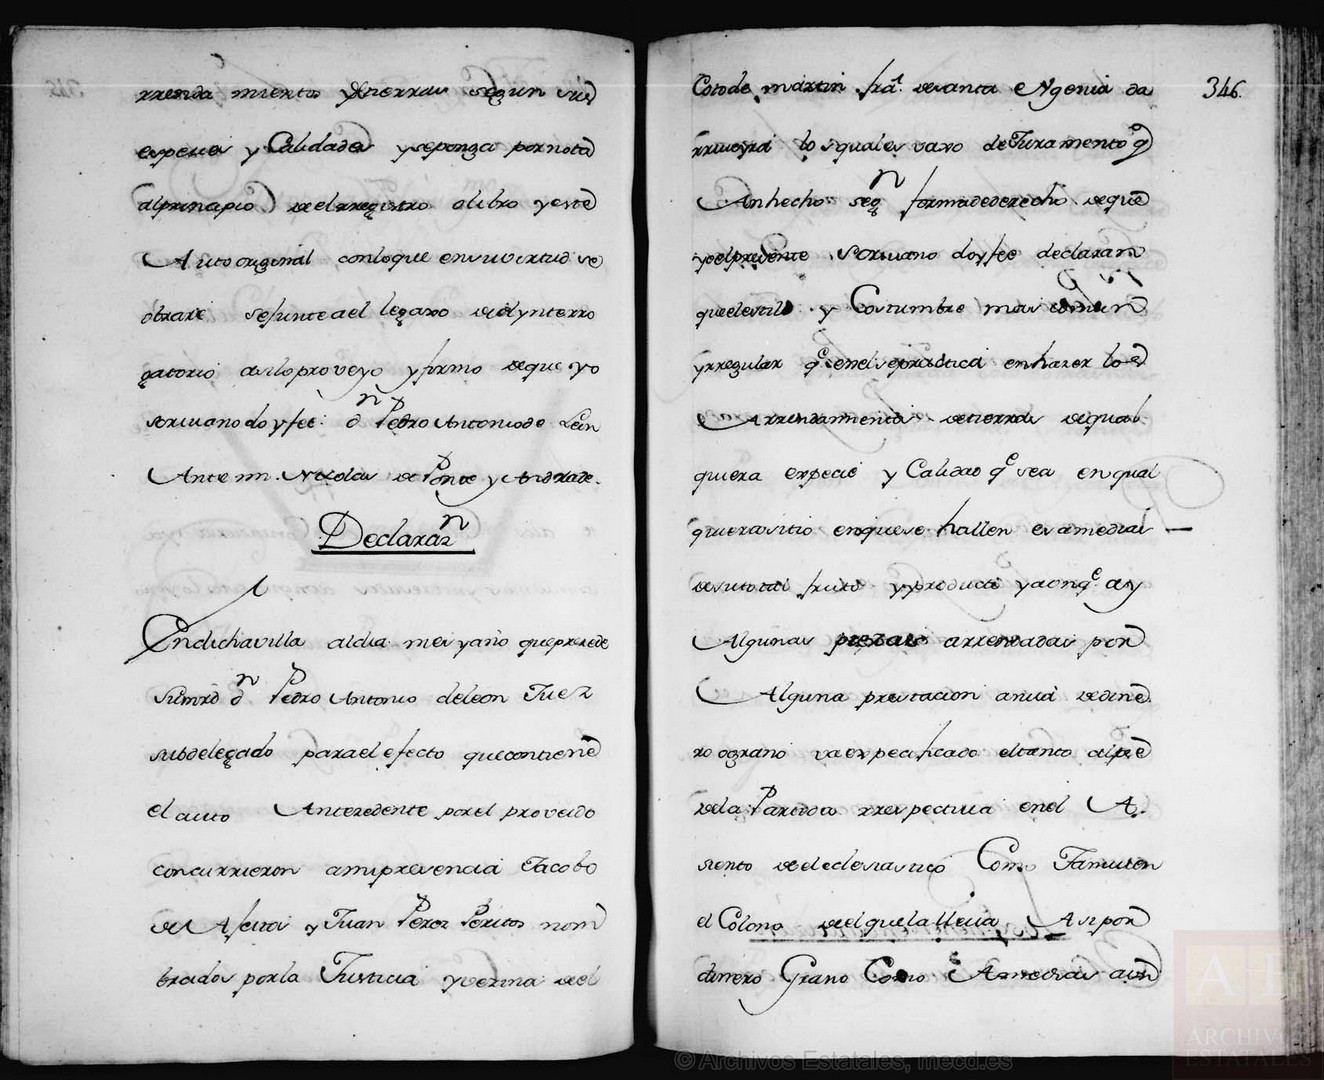 rrenda mientos de tierras segun sus
especies y Calidades y se ponga por nota
al principio del rregistro o libro y este
Auto original con lo que en su virtud se
obrare se junte a el legaxo del ynterro
gatorio asi lo proveyo y firmo de que yo
scrivano doy fee: dn Pedro Antonio de Leon
Ante mi. Nicolas de Ponte y Andrade.
Declarazn
1
En dicha villa al dia mes y año que prezede
su mrd dn Pedro Antonio de leon Juez
subdelegado para el efecto que contiene
el auto Antezedente por el proveido
concurrieron a mi presencia Jacobo
de y Juan Perez Peritos nom
brados por la Justicia y vezina del
Coto de martin fra. de santa eugenia da
rriveyra los quales vaxo de Juramento q
An hecho segn forma de derecho de que
yo el presente Scrivano doy fee declaran
que el estilo y Costumbre mas comun
y rregular qe en el se practica en hazer los
Arrendamentos de tierras de qual
quiera especie y Calidad qe sea en qual
quiera sitio en que se hallen es a medias
de su total fruto y producto y aonqe ay
Algunas piezas arrendadas por
Alguna prestacion anua de dine
ro o grano va especificado el tanto al pie
de la Partida rrespectiva en el A
siento del eclesiastico Como Tamvien
el Colono del que la lleva, Asi por
dinero Grano Como a medias aun
346.
© Archivos Estatales, mecd.es
A E
ARCHIVOS
ESTATALES